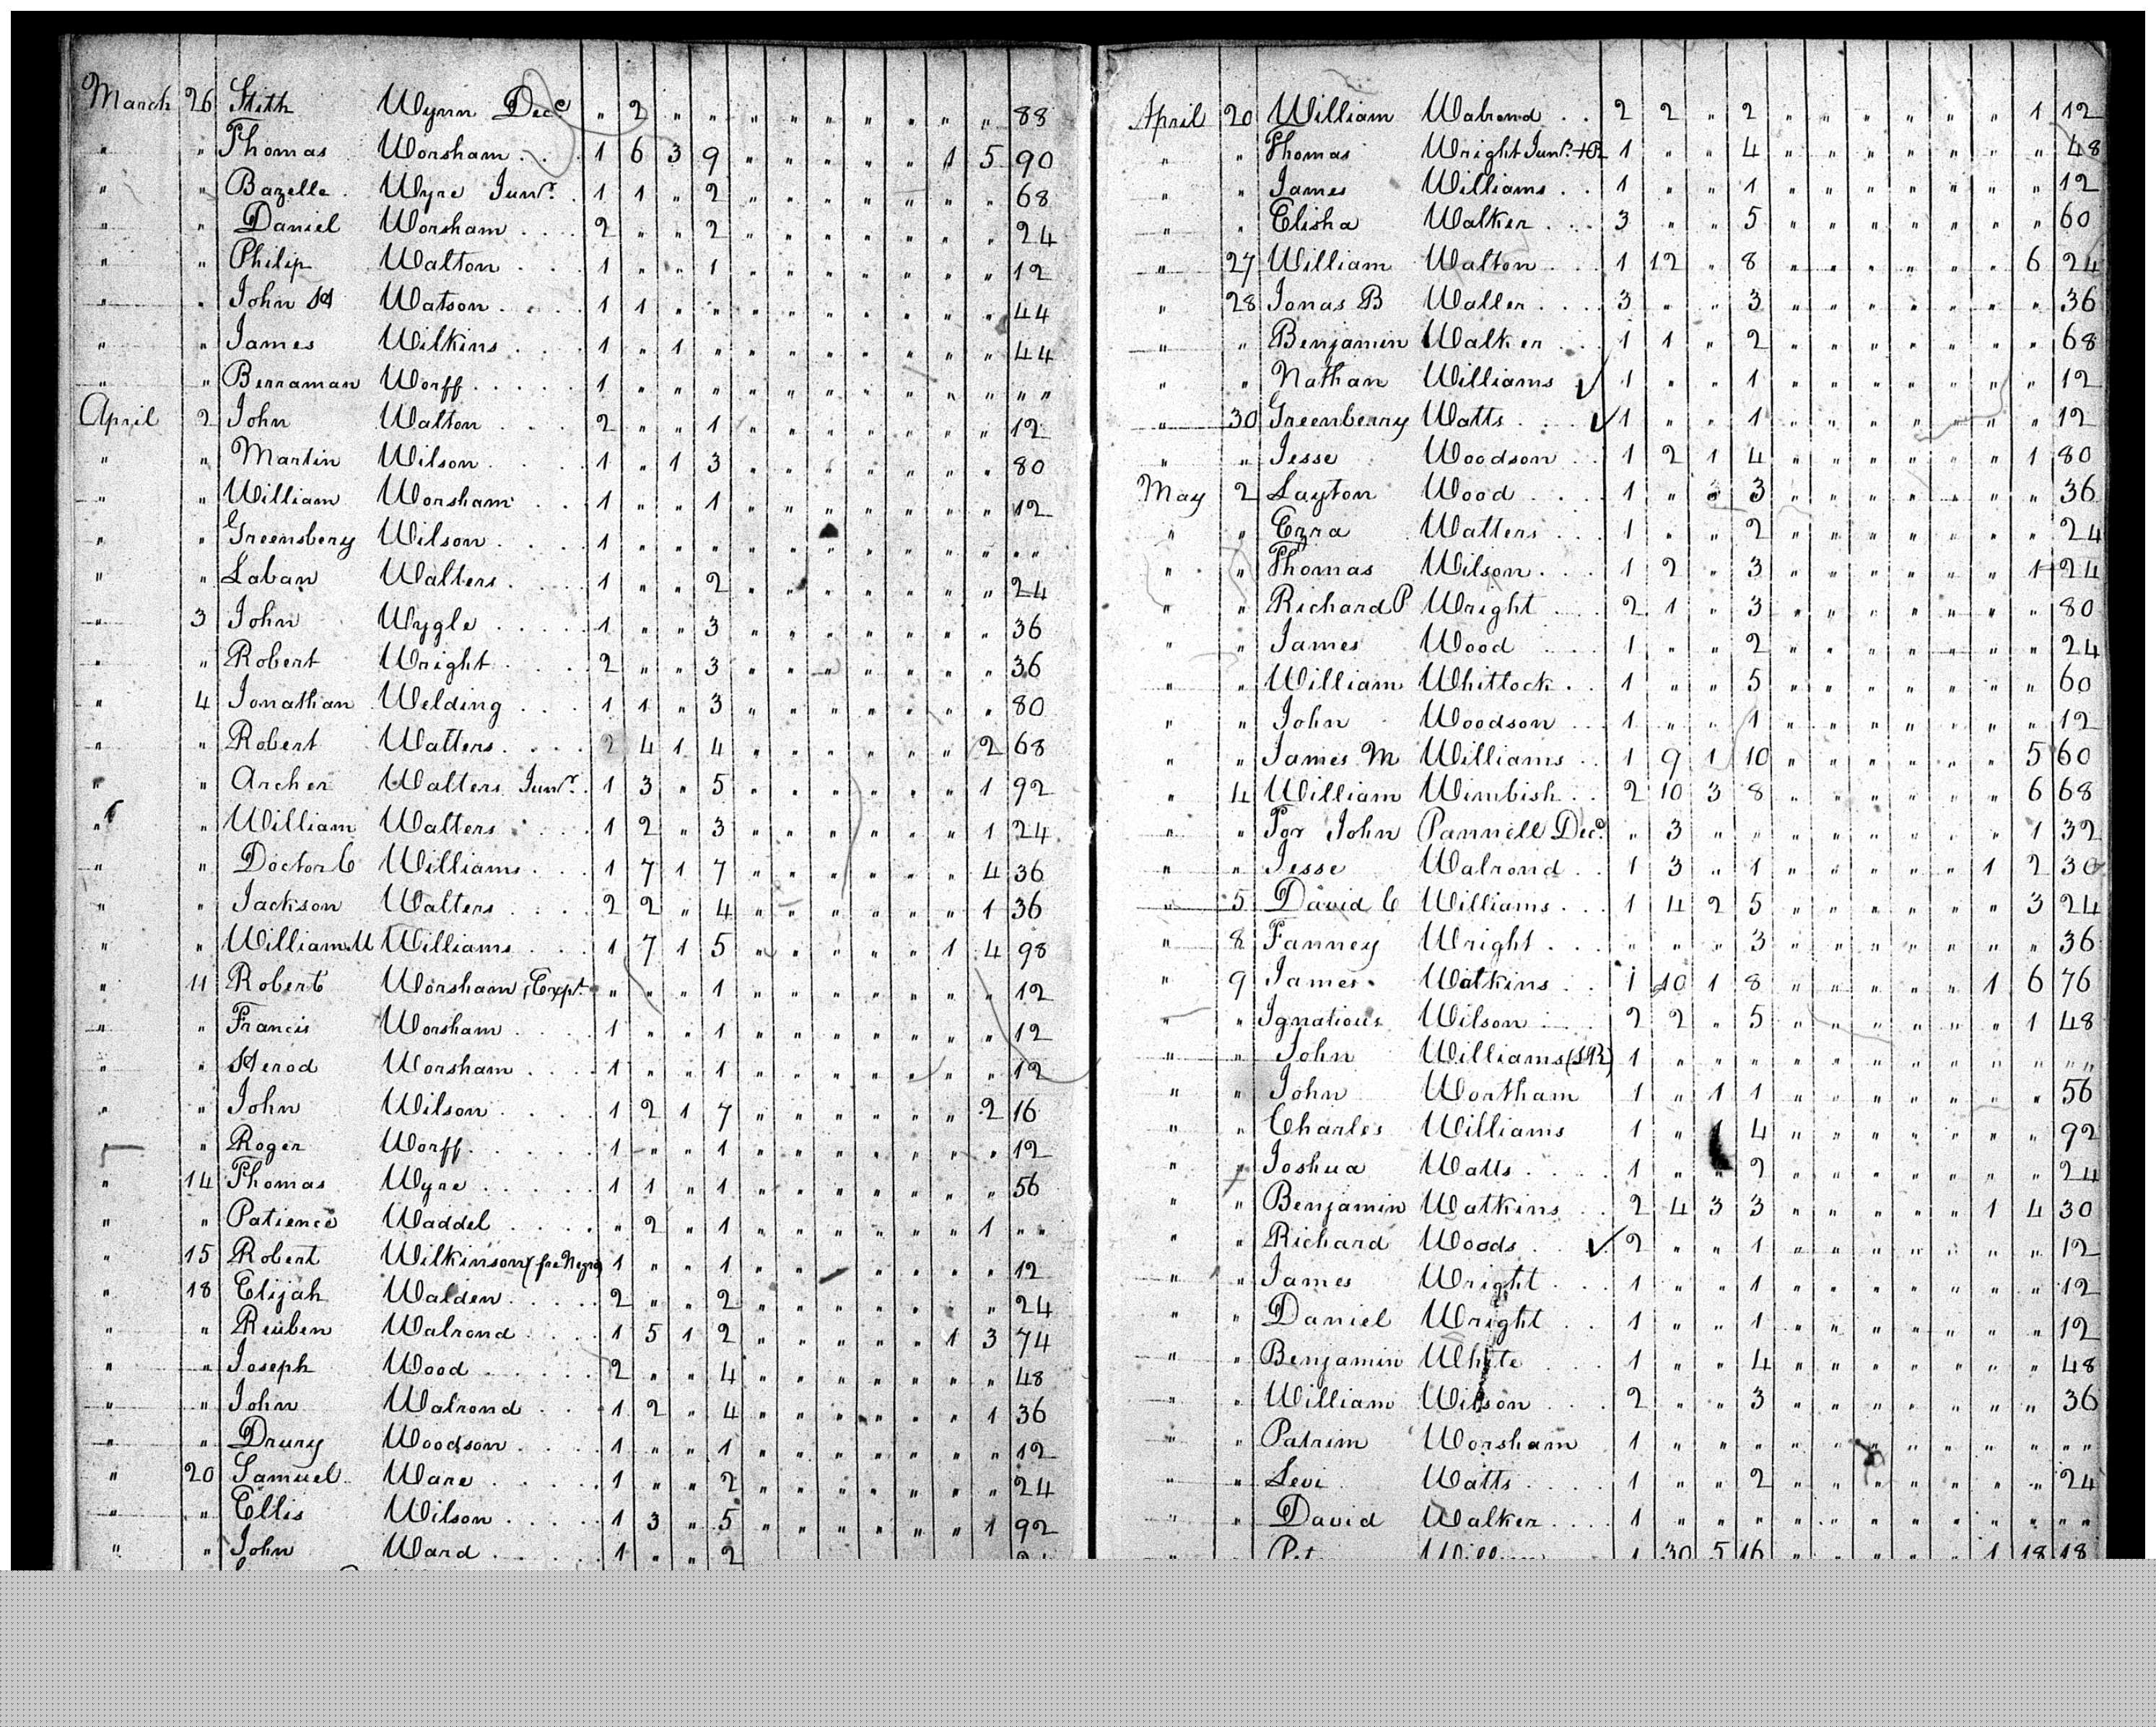 March 26 Stith Wynn Decd. " 2 " " " " " " " " " 88
" " Thomas Worsham . . . 1 6 3 9 " " " " " 1 5 90
" " Bazelle . Wyre Junr. . 1 1 " 2 " " " " " " " 68
" " Daniel Worsham . . . 2 " " 2 " " " " " " " 24
" " Philip Walton . . . 1 " " 1 " " " " " " " 12
" " John H Watson . . . . 1 1 " " " " " " " " " 44
" " James Wilkins . . . 1 " 1 " " " " " " " " 44
" " Berraman Worff . . . . . 1 " " " " " " " " " " " "
April 2 John Walton . . . 2 " " 1 " " " " " " " 12
" " Martin Wilson . . . . 1 " 1 3 " " " " " " " 80
" " William Worsham . . . 1 " " 1 " " " " " " " 12
" " Greensbery Wilson . . . . 1 " " " " " " " " " " " "
" " Laban Walters . . . . 1 " " 2 " " " " " " " 24
" 3 John Wygle . . . . . 1 " " 3 " " " " " " " 36
" " Robert Wright . . . . 2 " " 3 " " " " " " " 36
" 4 Jonathan Welding . . . 1 1 " 3 " " " " " " " 80
" " Robert Watters . . . . 2 4 1 4 " " " " " " 2 68
" " Archer Walters Junr. . 1 3 " 5 " " " " " " 1 92
" " William Walters . . . . 1 2 " 3 " " " " " " 1 24
" " Doctor C Williams . . . 1 7 1 7 " " " " " " 4 36
" " Jackson Walters . . . . 2 2 " 4 " " " " " " 1 36
" " William M Williams . . . 1 7 1 5 " " " " " 1 4 98
" 11 Robert Worsham, Expt. " " " 1 " " " " " " " 12
" " Francis Worsham . . . . 1 " " 1 " " " " " " " 12
" " Herod Worsham . . . . 1 " " 1 " " " " " " " 12
" " John Wilson . . . . . 1 2 1 7 " " " " " " 2 16
" " Roger Worff . . . . . 1 " " 1 " " " " " " " 12
" 14 Thomas Wyre . . . . . 1 1 " 1 " " " " " " " 56
" " Patience Waddel . . . . . " 2 " 1 " " " " " " 1 " "
" 15 Robert Wilkinson (free Negro) 1 " " 1 " " " " " " " 12
" 18 Elijah Walden . . . . . 2 " " 2 " " " " " " " 24
" " Reuben Walrond . . . . 1 5 1 2 " " " " " 1 3 74
" " Joseph Wood . . . . . . 2 " " 4 " " " " " " " 48
" " John Walrond . . . . 1 2 " 4 " " " " " " 1 36
" " Drury Woodson . . . . 1 " " 1 " " " " " " " 12
" 20 Samuel Ware . . . . . 1 " " 2 " " " " " " " 24
" " Ellis Wilson . . . . . 1 3 " 5 " " " " " " 1 92
" " John Ward . . . . . . 1 " " 2
April 20 William Walrond . . 2 2 " 2 " " " " " " 1 12
" " Thomas Wright Junr. 1 " " 4 " " " " " " " 48
" " James Williams . . 1 " " 1 " " " " " " " 12
" " Elisha Walker . . . 3 " " 5 " " " " " " " 60
" 27 William Walton . . . 1 12 " 8 " " " " " " 6 24
" 28 Jonas B Waller . . . 3 " " 3 " " " " " " " 36
" " Benjamin Walker . . . 1 1 " 2 " " " " " " " 68
" " Nathan Williams ✓ 1 " " 1 " " " " " " " 12
" 30 Greenberry Watts . . . ✓ 1 " " 1 " " " " " " " 12
" " Jesse Woodson . . 1 2 1 4 " " " " " " 1 80
May 2 Layton Wood . . . . 1 " " 3 " " " " " " " 36
" " Ezra Watters . . . 1 " " 2 " " " " " " " 24
" " Thomas Wilson . . . 1 2 " 3 " " " " " " 1 24
" " Richard P Wright . . . 2 1 " 3 " " " " " " " 80
" " James Wood . . . . 1 " " 2 " " " " " " " 24
" " William Whitlock . . 1 " " 5 " " " " " " " 60
" " John Woodson . . . 1 " " 1 " " " " " " " 12
" " James M Williams . . 1 9 1 10 " " " " " " 5 60
" 4 William Wimbish . . . 2 10 3 8 " " " " " " 6 68
" " For John Pannell Decd. " 3 " " " " " " " " 1 32
" " Jesse Walrond . . . 1 3 " 1 " " " " " 1 2 30
" 5 David C Williams . . . 1 4 2 5 " " " " " " 3 24
" 8 Fanney Wright . . . " " " 3 " " " " " " " 36
" 9 James Watkins . . 1 10 1 8 " " " " " 1 6 76
" " Ignatious Wilson . . . 2 2 " 5 " " " " " " 1 48
" " John Williams (SR) 1 " " " " " " " " " " " "
" " John Wortham 1 " 1 1 " " " " " " " 56
" " Charles Williams 1 " 1 4 " " " " " " " 92
" " Joshua Watts . . . . 1 " " 2 " " " " " " " 24
" " Benjamin Watkins . . 2 4 3 3 " " " " " 1 4 30
" " Richard Woods . . ✓ 2 " " 1 " " " " " " " 12
" " James Wright . . . 1 " " 1 " " " " " " " 12
" " Daniel Wright . . . 1 " " 1 " " " " " " " 12
" " Benjamin White . . . 1 " " 4 " " " " " " " 48
" " William Wilson . . . 2 " " 3 " " " " " " " 36
" " Patrim Worsham 1 " " " " " " " " " " " "
" " Levi Watts . . . . 1 " " 2 " " " " " " " 24
" " David Walker . . . . 1 " " " " " " " " " " " "
" " 1 30 5 16 " " " " " 1 18 18